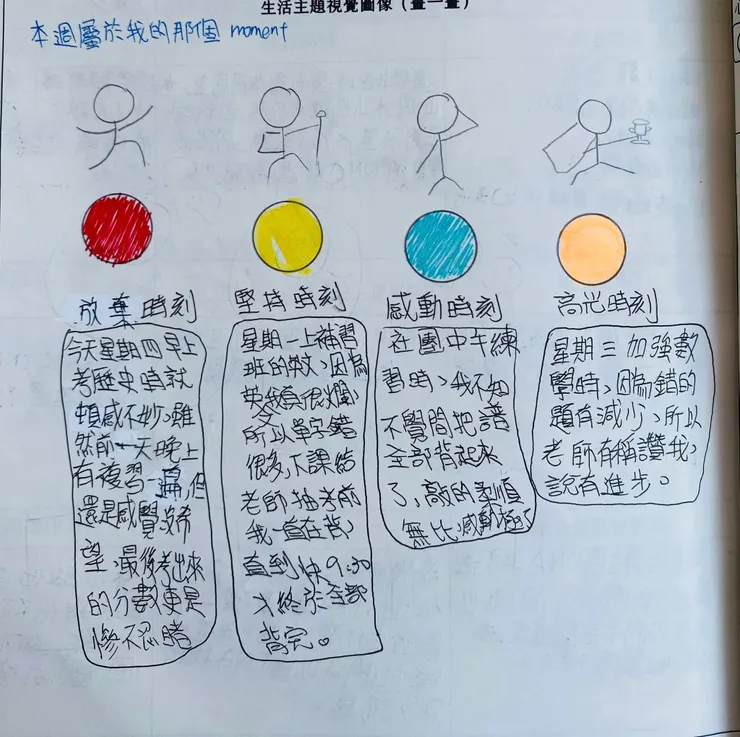 生活主題視覺圖像(畫一畫)
本週屬於我的那個 moment
放棄時刻
今天星期四早上
考歷史時就
頓感不妙，雖
然前一天晚上
有複習一遍，但
還是感覺沒希
望，最後考出來
的分數更是
慘不忍睹
堅持時刻
星期一上補習
班的英文，因為
英文我真很爛，
所以單字錯
很多，下課結
老師抽考前
我一直在背，
直到快9:30
才終於全部
背完。
感動時刻
社團中午練
習時，我不知
不覺間把譜
全部背起來
了，敲的柔順
無比，感動極了
高光時刻
星期三加強數
學時，因為錯的
題有減少，所以
老師有稱讚我，
說有進步。